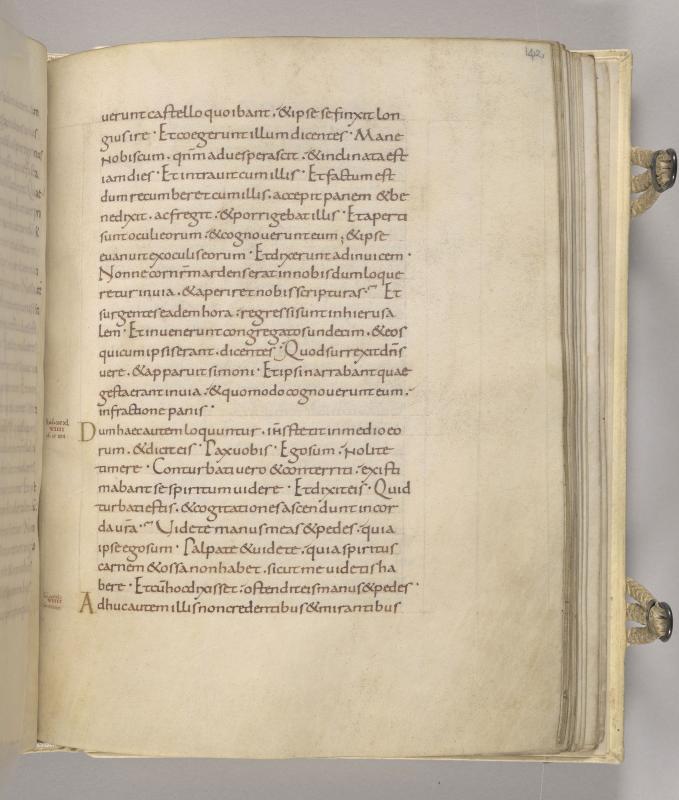 142
uerunt castello quo ibant . & ipse se finxit lon
gius ire · Et coegerunt illum dicentes · Mane
nobiscum . qnm aduesperascit . & inclinata est
iam dies · Et intrauit cum illis · Et factum est
dum recumberet cum illis . accepit panem & be
nedixit . ac fregit . & porrigebat illis · Et aperti
sunt oculi eorum . & cognouerunt eum ; & ipse
euanuit ex oculis eorum · Et dixerunt ad inuicem ·
Nonne cor nrm ardens erat in nobis dum loque
retur in uia . & aperiret nobis scripturas · Et
surgentes eadem hora . regressi sunt in hierusa
lem · Et inuenerunt congregatos undecim . & eos
qui cum ipsis erant . dicentes · Quod surrexit dns
uere . & apparuit simoni · Et ipsi narrabant quae
gesta erant in uia . & quomodo cognouerunt eum .
in fractione panis ·
Dum haec autem loquuntur . ihs stetit in medio eo
rum . & dicit eis · Pax uobis · Ego sum . nolite
timere · Conturbati uero & conterriti . existi
mabant se spiritum uidere · Et dixit eis · Quid
turbati estis . & cogitationes ascendunt in cor
da ura · Uidete manus meas & pedes . quia
ipse ego sum · Palpate & uidete . quia spiritus
carnem & ossa non habet . sicut me uidetis ha
bere · Et cū hoc dixisset . ostendit eis manus & pedes ·
Adhuc autem illis non credentibus & mirantibus